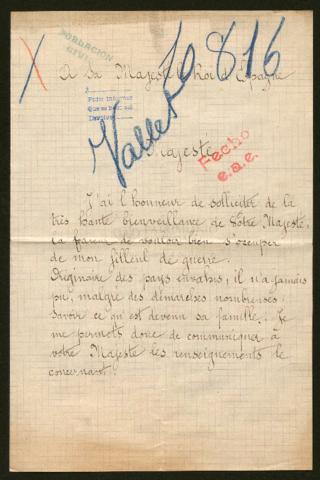 POBLACION
CIVIL
816
A Sa Majesté le Roi d'Espagne
Valleto
Majesté
Fecho
e.a.e.
J'ai l'honneur de solliciter de la
très haute bienveillance de Votre Majesté,
la faveur de vouloir bien s'occuper
de mon filleul de guerre.
Originaire des pays envahis, il n'a jamais
pu, malgré des démarches nombreuses
savoir ce qu'est devenu sa famille. Je
me permets donc de communiquer à
votre Majesté les renseignements le
concernant.